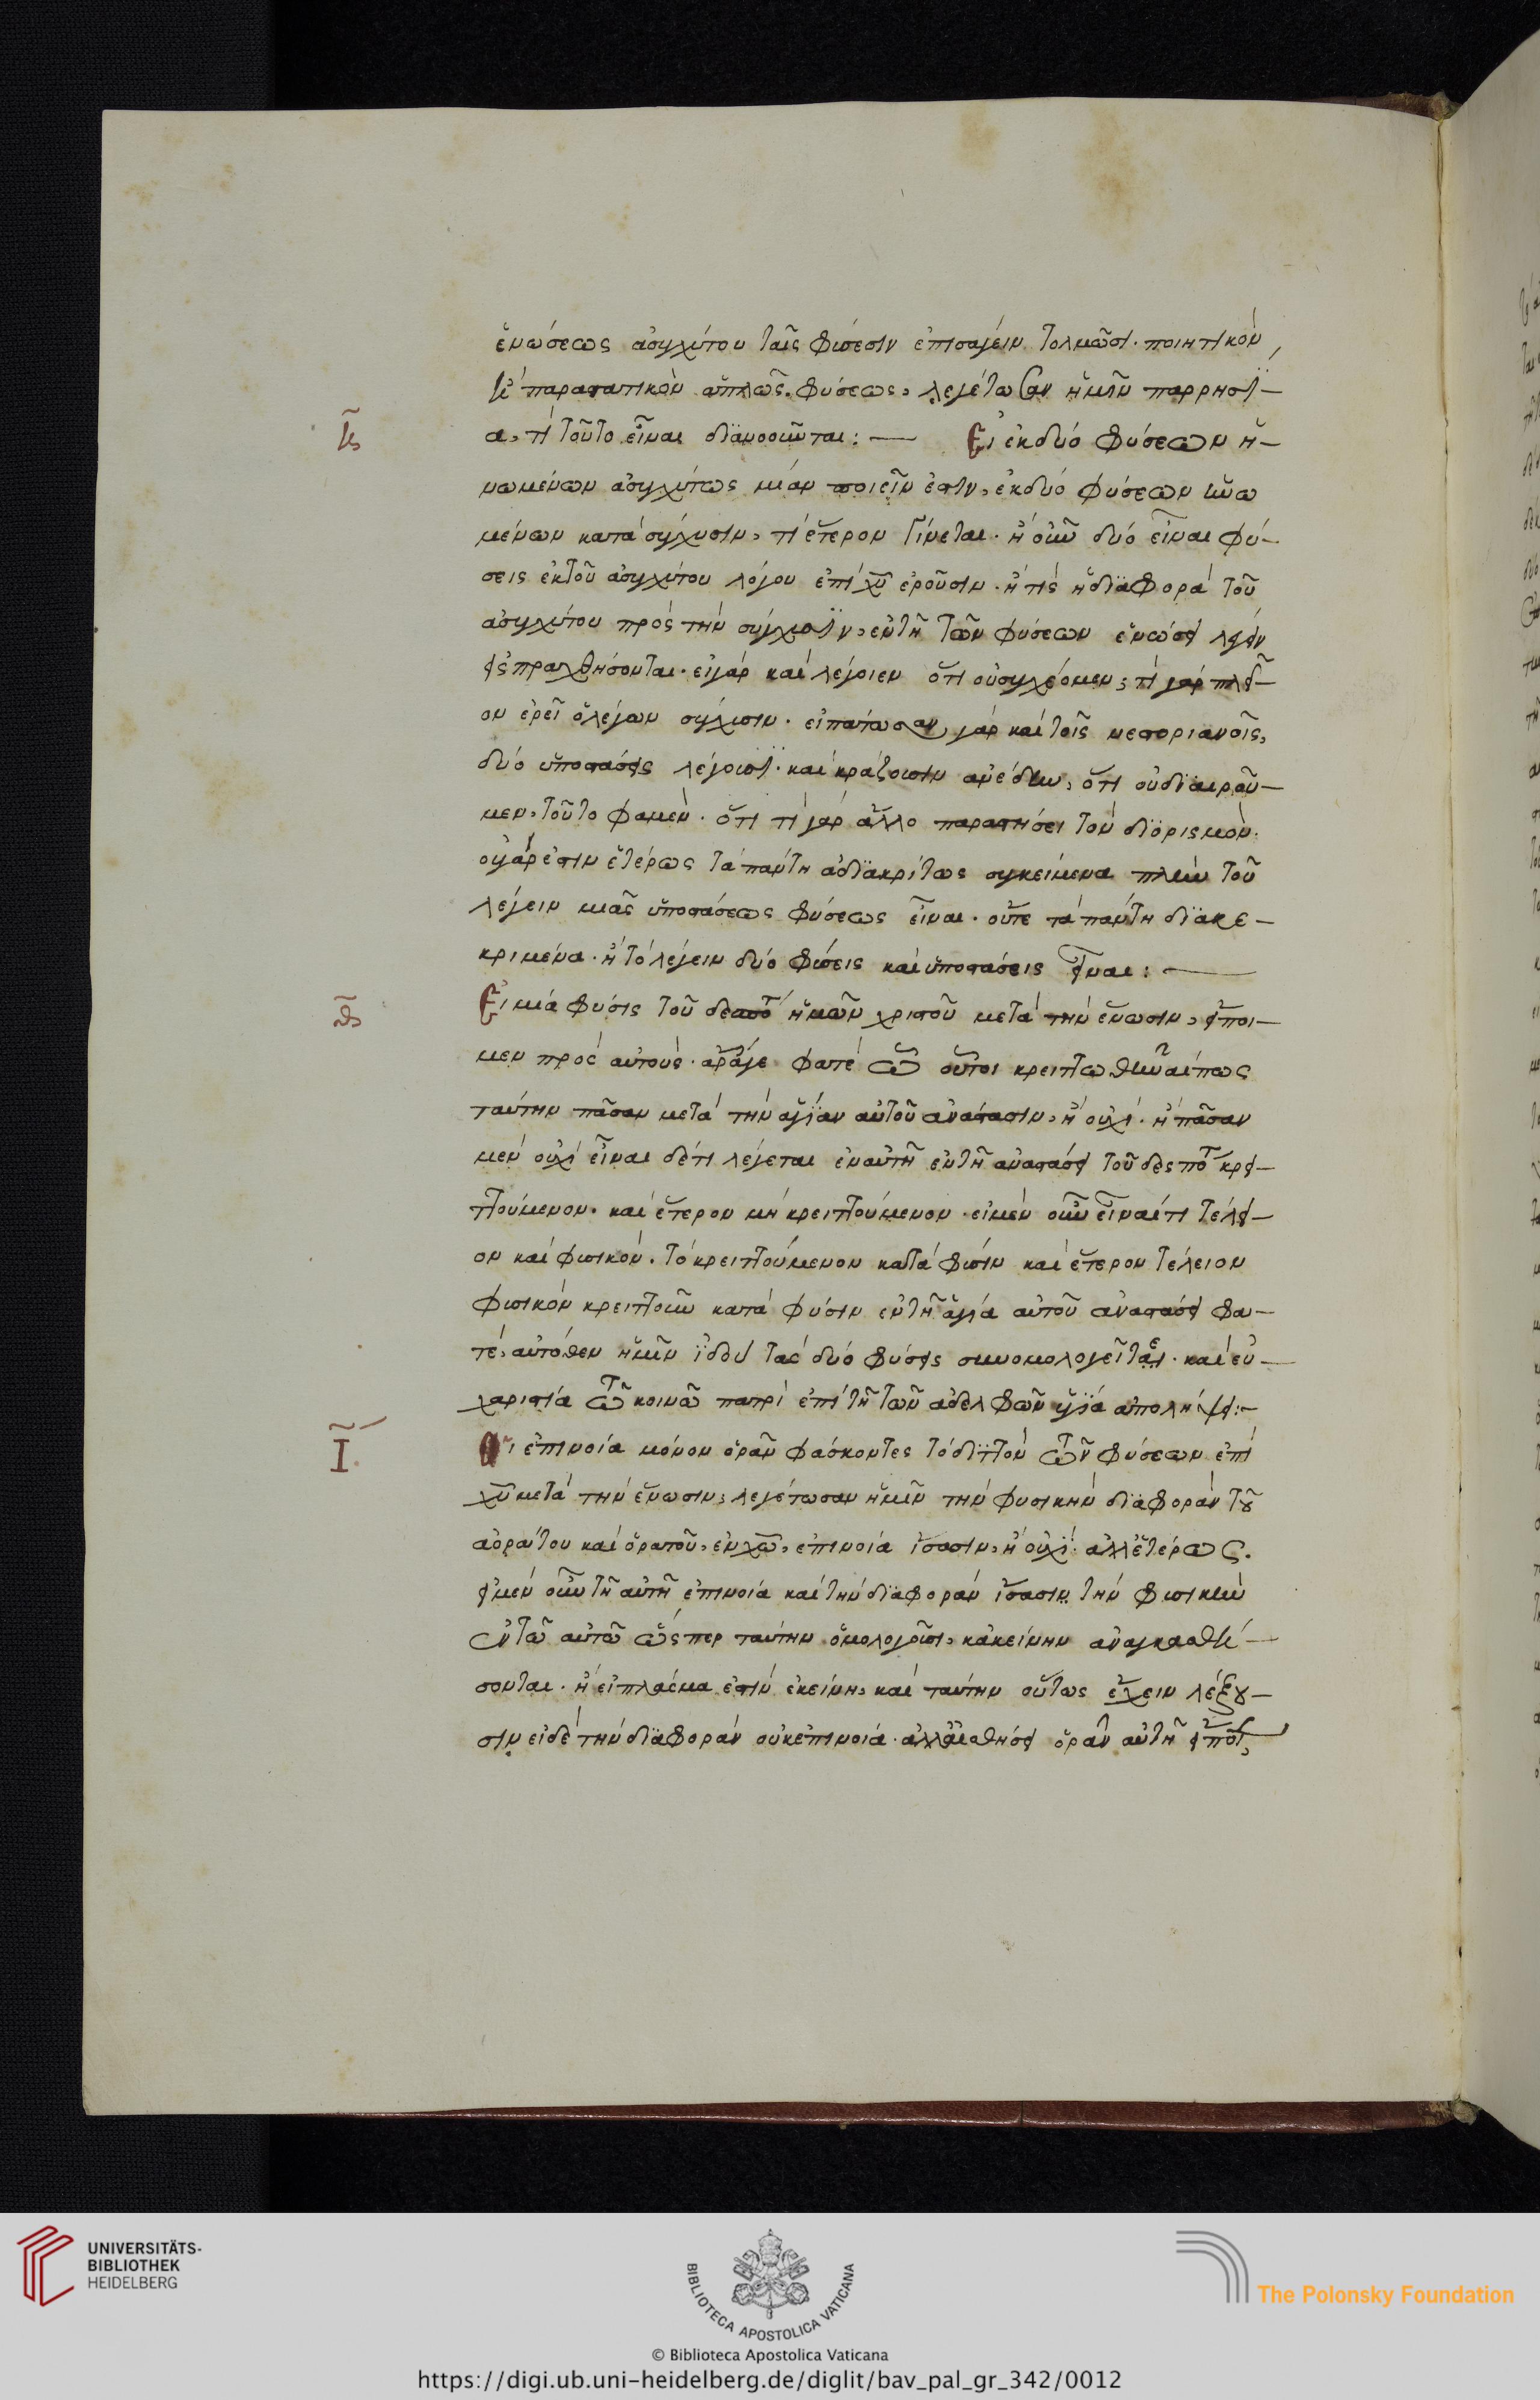 ἑνώσεως ἀσυγχύτου ταῖς φύσεσιν ἐπεισαγεῖν τολμῶσι. ποιητικὸν
ἢ παραστατικὸν ἁπλῶς. φύσεως, λεγέτωσαν ἡμῖν παρρησί-
α, τί τοῦτο εἶναι διανοοῦνται:— Εἰ ἐκ δύο φύσεων ἡ-
νωμένων ἀσυγχύτως μίαν ποιεῖν ἐστιν, ἐκ δύο φύσεων ἡνω
μένων κατὰ σύγχυσιν, τί ἕτερον γίνεται. ἢ οὖν δύο εἶναι φύ-
σεις ἐκ τοῦ ἀσυγχύτου λόγου ἐπὶ χυ ἐροῦσιν. ἢ τίς ἡ διαφορὰ τοῦ
ἀσυγχύτου πρὸς τὴν σύγχυσιν, ἐν τῇ τῶν φύσεων ἑνώσει λέγειν
εἰσπραχθήσονται. εἰ γὰρ καὶ λέγοιεν ὅτι οὐ συγχέομεν, τί γὰρ πλεῖ-
ον ἐρεῖ ὁ λέγων σύγχυσιν. εἰπάτωσαν γὰρ καὶ τοῖς νεστοριανοῖς,
δύο ὑποστάσεις λέγουσι. καὶ κράζουσιν ἀνέδην, ὅτι οὐ διαιροῦ-
μεν, τοῦτο φαμέν. ὅτι τί γὰρ ἄλλο παραστήσει τὸν διορισμόν.
οὐ γάρ ἐστιν ἑτέρως τὰ πάντη ἀδιακρίτως συγκείμενα πλὴν τοῦ
λέγειν μιᾶς ὑποστάσεως φύσεως εἶναι. οὔτε τὰ πάντη διακε-
κριμένα. ἢ τὸ λέγειν δύο φύσεις καὶ ὑποστάσεις εἶναι:—
θ
Εἰ μία φύσις τοῦ δεσπότ ἡμῶν χριστοῦ μετὰ τὴν ἕνωσιν, εἴποι-
μεν πρὸς αὐτούς. ἆρά γε φατὲ ὦ οὗτοι κρειττωθῆναί πως
ταύτην πᾶσαν μετὰ τὴν ἁγίαν αὐτοῦ ἀνάστασιν, ἢ οὐχί. ἢ πᾶσαν
μὲν οὐχὶ εἶναι δέ τι λέγεται ἐν αὐτῇ ἐν τῇ ἀναστάσει τοῦ δεσπότ κρει-
ττούμενον. καὶ ἕτερον μὴ κρειττούμενον. εἰ μὲν οὖν εἶναί τι τέλει-
ον καὶ φυσικὸν. τὸ κρειττούμενον κατὰ φύσιν καὶ ἕτερον τέλειον
φυσικὸν κρειττοῦν κατὰ φύσιν ἐν τῇ ἁγία αὐτοῦ ἀναστάσει φα-
τέ, αὐτόθεν ἡμῖν ἰδοὺ τὰς δύο φύσεις συνομολογεῖται. καὶ εὐ-
χαριστία τῶ κοινῶ πατρὶ ἐπὶ τῇ τῶν ἀδελφῶν ὑγεία ἀπολήψει:-
Ι
Οἱ ἐπινοία μόνον ὁρᾶν φάσκοντες τὸ διττὸν τῶν φύσεων ἐπὶ
χυ μετὰ τὴν ἕνωσιν, λεγέτωσαν ἡμῖν τὴν φυσικὴν διαφορὰν τοῦ
ἀοράτου καὶ ὁρατοῦ, ἐν χω, ἐπινοία ἴσασιν, ἢ οὐχί. ἀλλ' ἑτέρως.
εἰ μὲν οὖν τῇ αὐτῇ ἐπινοία καὶ τὴν διαφορὰν ἴσασιν τὴν φυσικὴν
ἐν τῶ αὐτῶ ὥσπερ ταύτην ὁμολογοῦσι, κἀκείνην ἀναγκασθή-
σονται. ἢ εἰ πλάσμα ἐστὶν ἐκείνη, καὶ ταύτην οὕτως ἔχειν λέξου-
σιν εἰ δὲ τὴν διαφορὰν οὐκ ἐπινοία. ἀλλ' αἰσθήσει ὁρᾶν αὐτῇ εἴποι,
UNIVERSITÄTS-
BIBLIOTHEK
HEIDELBERG
BIBLIOTECA APOSTOLICA VATICANA
The Polonsky Foundation
© Biblioteca Apostolica Vaticana
https://digi.ub.uni-heidelberg.de/diglit/bav_pal_gr_342/0012